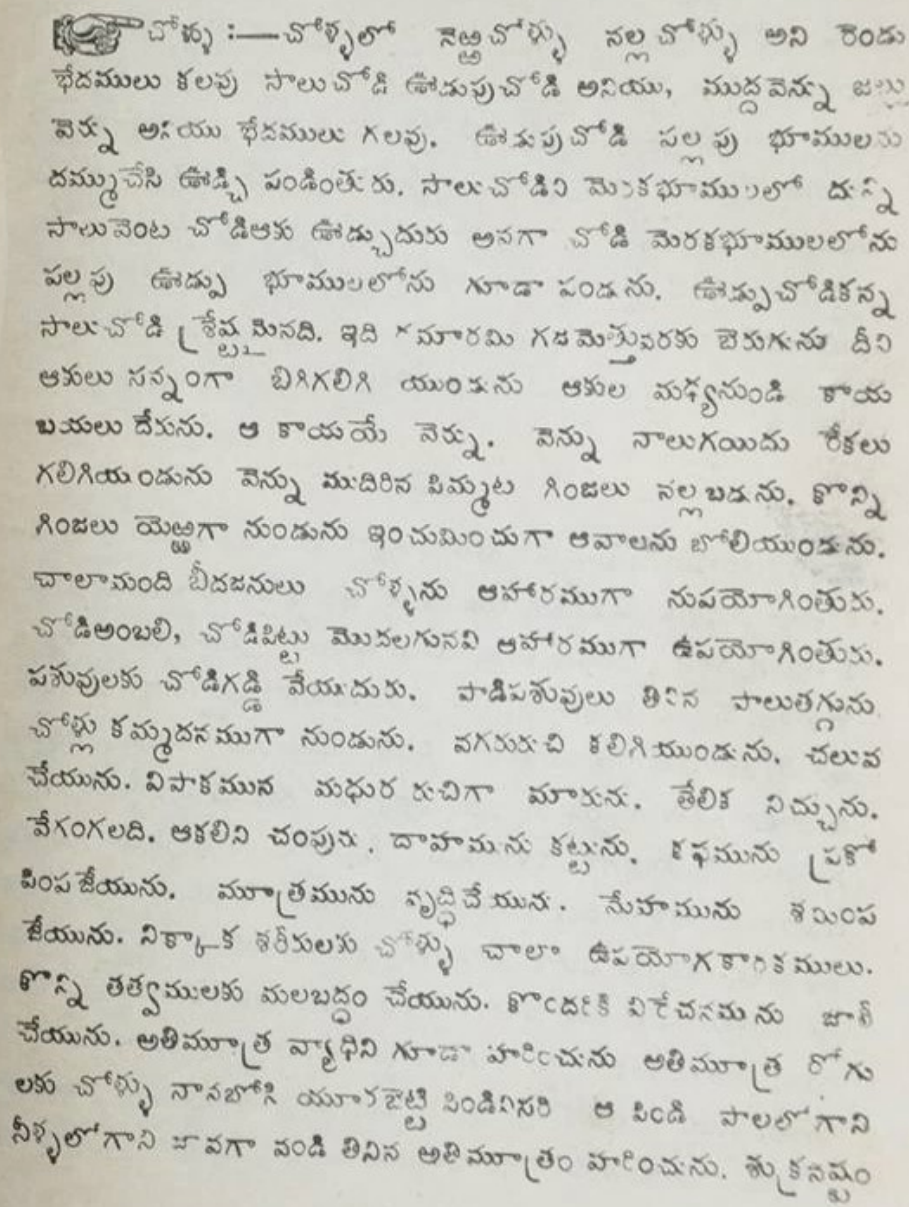 చోళ్ళు :—చోళ్ళలో నెఱ్ఱచోళ్ళు నల్లచోళ్ళు అని రెండు
భేదములు కలవు సాలుచోడి ఊడుపుచోడి అనియు, ముద్దవెన్ను జల్లు
వెన్ను అనియు భేదములు గలవు. ఊడుపుచోడి పల్లపు భూములను
దమ్ముచేసి ఊడ్చి పండింతురు. సాలుచోడిని మెరకభూములలో దున్ని
సాలువెంట చోడిఆకు ఊడ్చుదురు అనగా చోడి మెరకభూములలోను
పల్లపు ఊడ్పు భూములలోను గూడా పండును. ఊడ్పుచోడికన్న
సాలుచోడి శ్రేష్టమైనది. ఇది సుమారమి గజమెత్తువరకు బెరుగును దీని
ఆకులు సన్నంగా బిగిగలిగి యుండును ఆకుల మధ్యనుండి కాయ
బయలు దేరును. ఆ కాయయే వెన్ను. వెన్ను నాలుగయిదు రేకలు
గలిగియుండును వెన్ను ముదిరిన పిమ్మట గింజలు నల్లబడును. కొన్ని
గింజలు యెఱ్ఱగా నుండును ఇంచుమించుగా ఆవాలను బోలియుండును.
చాలామంది బీదజనులు చోళ్ళను ఆహారముగా నుపయోగింతురు.
చోడిఅంబలి, చోడిపిట్టు మొదలగునవి ఆహారముగా ఉపయోగింతురు.
పశువులకు చోడిగడ్డి వేయుదురు. పాడిపశువులు తినిన పాలుతగ్గును
చోళ్లు కమ్మదనముగా నుండును. వగరురుచి కలిగియుండును. చలువ
చేయును. విపాకమున మధుర రుచిగా మారును. తేలిక నిచ్చును.
వేగంగలది. ఆకలిని చంపును. దాహమును కట్టును. కఫమును ప్రకో
పింపజేయును. మూత్రమును వృద్ధిచేయును. మేహమును శమింప
జేయును. నిక్కాక శరీరులకు చోళ్ళు చాలా ఉపయోగకారికములు.
కొన్ని తత్వములకు మలబద్ధం చేయును. కొందరికి విరేచనమును జారీ
చేయును. అతిమూత్ర వ్యాధిని గూడా హరించును అతిమూత్ర రోగు
లకు చోళ్ళు నానబోసి యూరబెట్టి పిండివిసరి ఆ పిండి పాలలోగాని
నీళ్ళలోగాని జావగా వండి తినిన అతిమూత్రం హరించును. శుక్రనష్టం